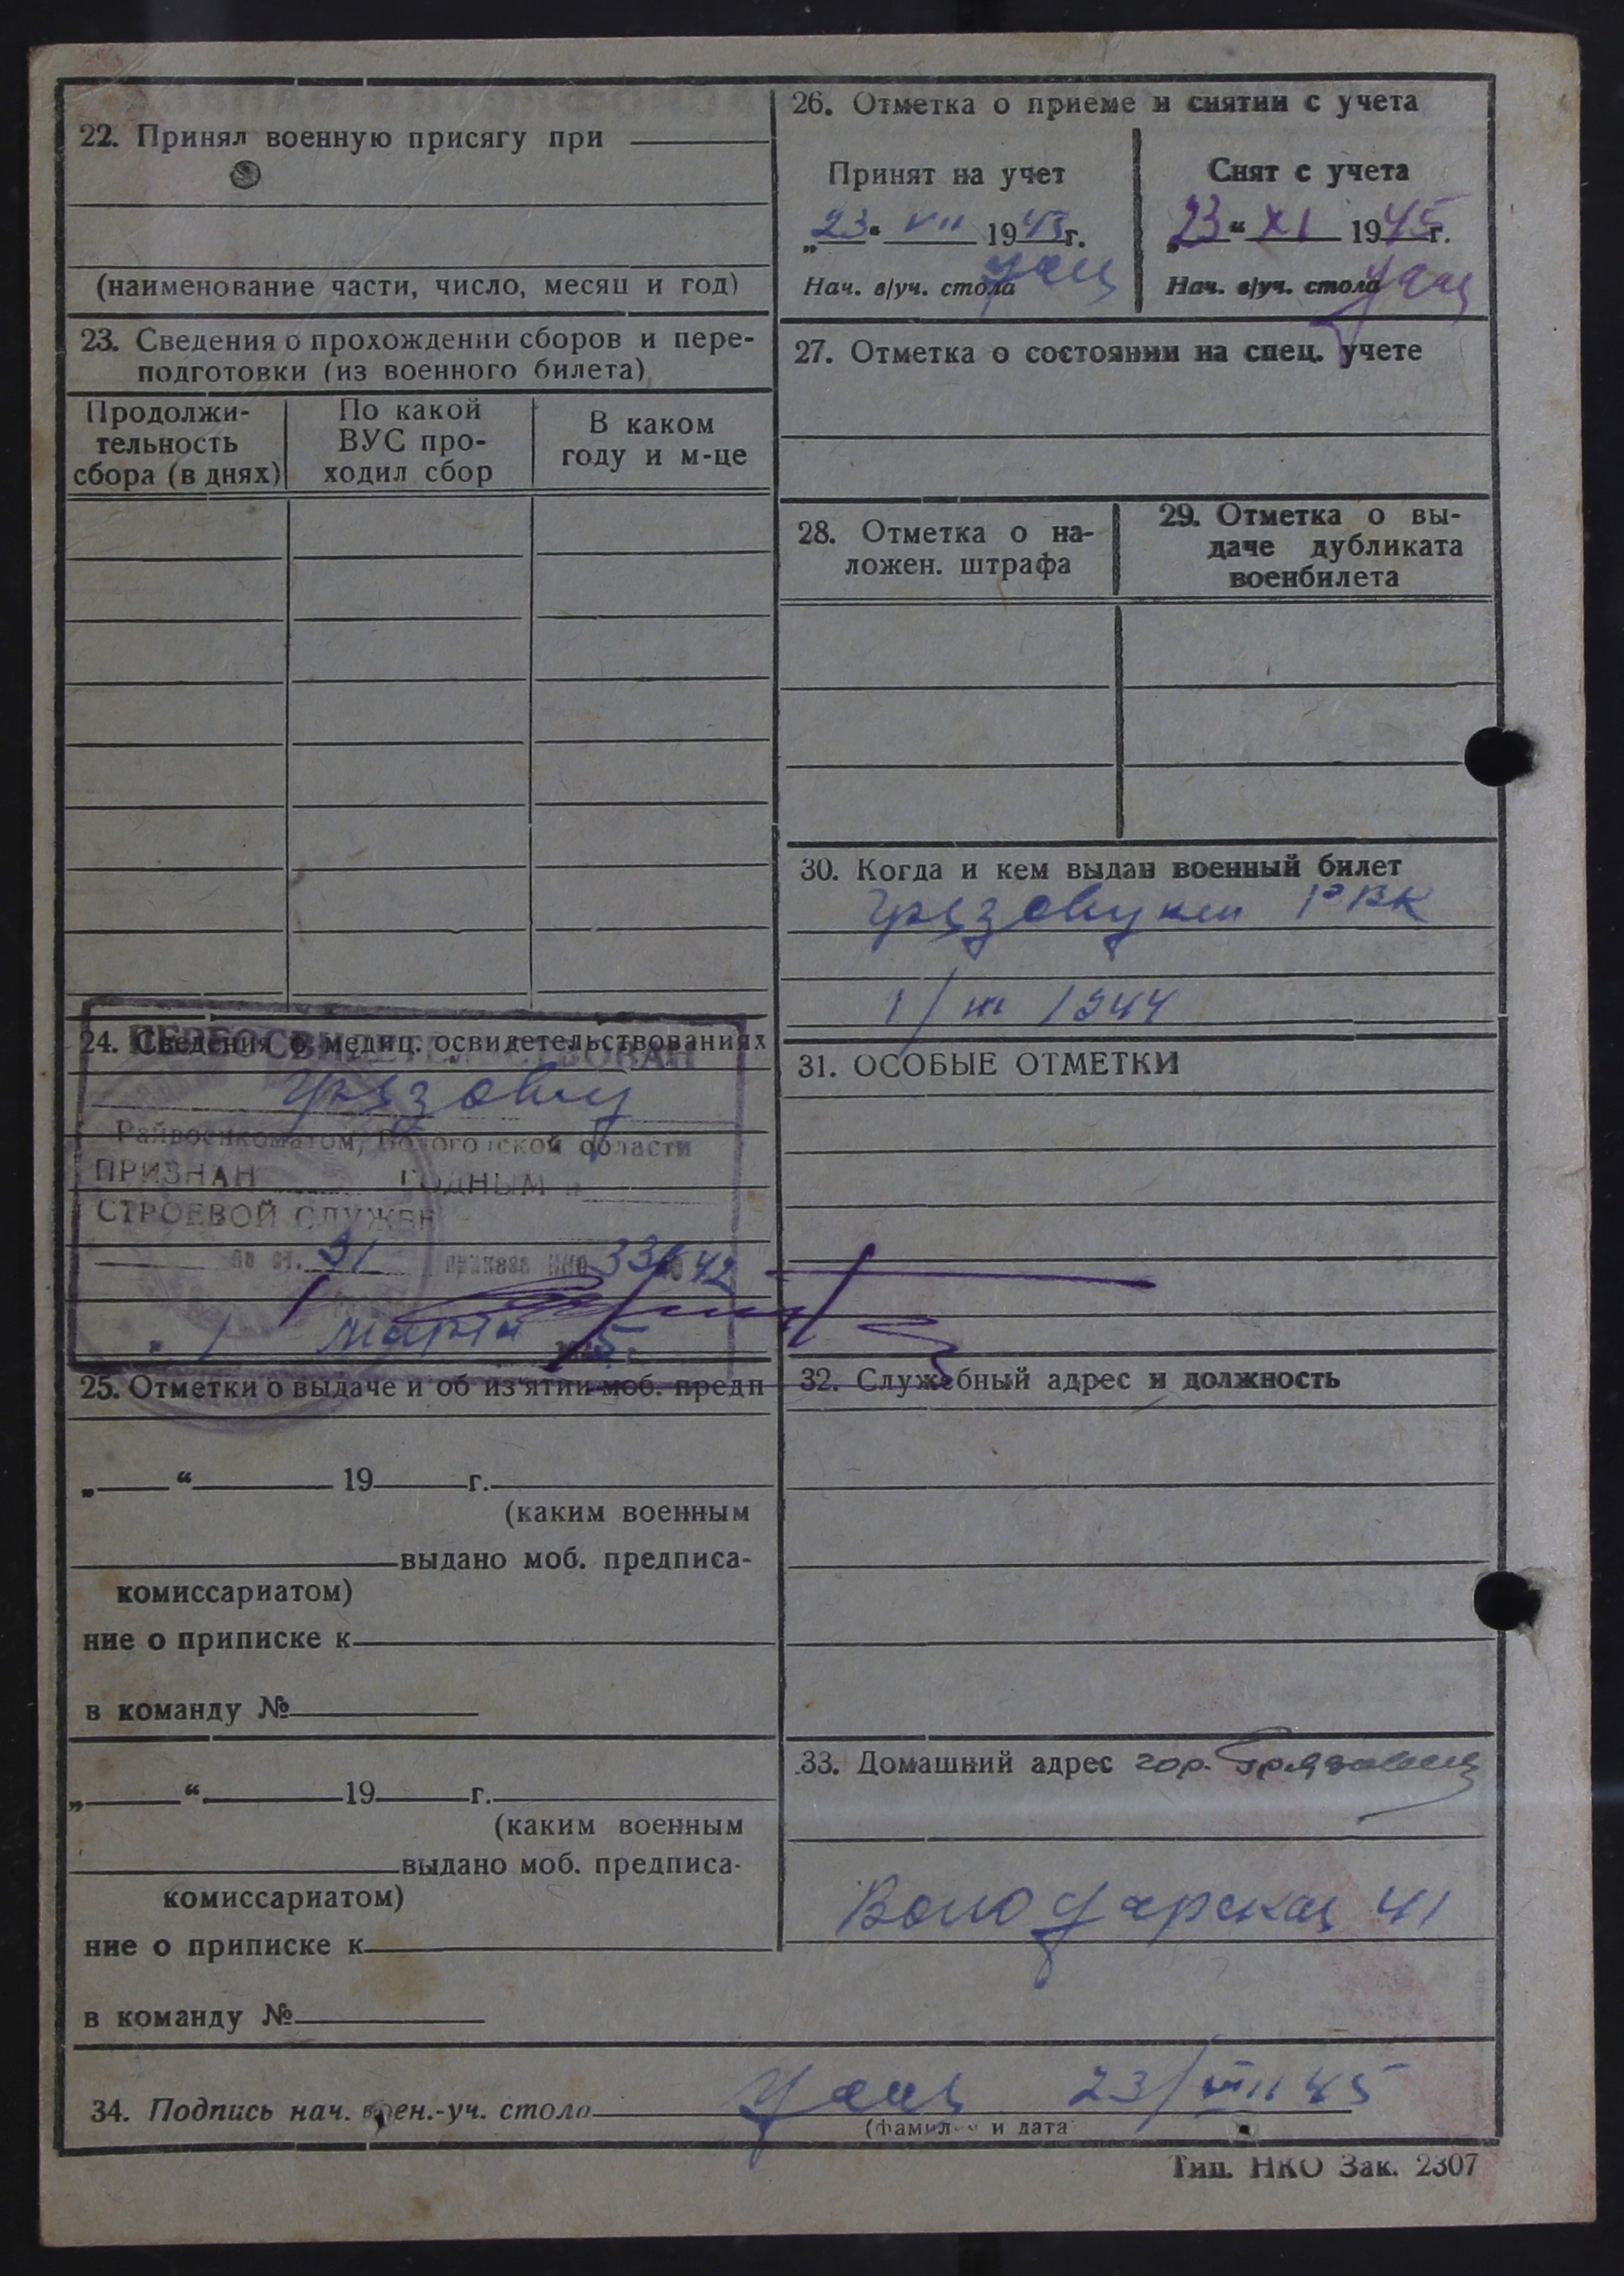 22. Принял военную присягу при
(наименование части, число, месяц и год)
23. Сведения о прохождении сборов и пере-
подготовки (из военного билета)
Продолжи-
тельность
сбора (в днях)
По какой
ВУС про-
ходил сбор
В каком
году и м-це
24. Сведения о медиц. освидетельствованиях
ПЕРЕОСВИДЕТЕЛЬСТВОВАН
Грязовец
Райвоенкоматом, Вологодской области
ПРИЗНАН ГОДНЫМ к
СТРОЕВОЙ СЛУЖБЕ
по ст. 31 приказа НКО 336 42
„ 1 марта
25. Отметки о выдаче и об из'ятии моб. предп
„ “ 19 г.
(каким военным
выдано моб. предписа-
комиссариатом)
ние о приписке к
в команду №
„ “ 19 г.
(каким военным
выдано моб. предписа-
комиссариатом)
ние о приписке к
в команду №
26. Отметка о приеме и снятии с учета
Принят на учет
„23“ VII 1945 г.
Нач. в/уч. стола
Снят с учета
„23“ XI 1945 г.
Нач. в/уч. стола
27. Отметка о состоянии на спец. учете
28. Отметка о на-
ложен. штрафа
29. Отметка о вы-
даче дубликата
военбилета
30. Когда и кем выдан военный билет
Грязовцким РВК
1/III 1944
31. ОСОБЫЕ ОТМЕТКИ
32. Служебный адрес и должность
33. Домашний адрес гор. Грязовец
Володарская 41
34. Подпись нач. воен.-уч. стола 23/VIII 45
(фамилия и дата
Тип. НКО Зак. 2307